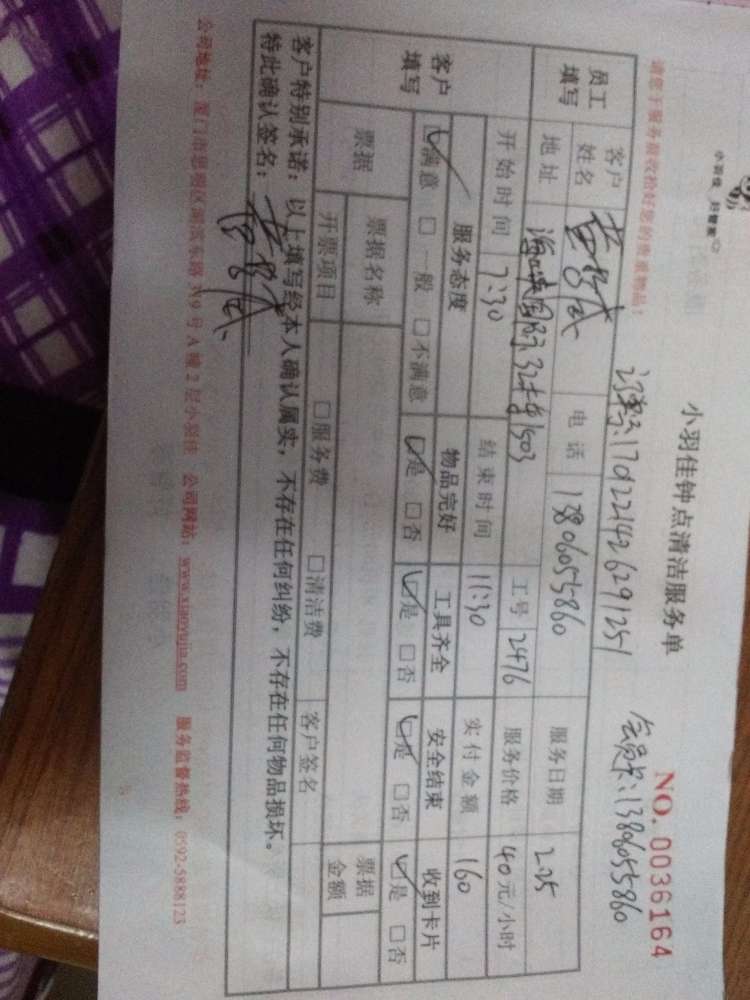 小羽佳钟点清洁服务单
NO. 0036164
会员卡:13806055860
订单号:179221426291251
请您于服务前收拾好您的贵重物品!
员工填写 客户姓名 电话 13806055860 服务日期 2.25
地址 海峡国际32号1503 工号 2476 服务价格 40元/小时
开始时间 7:30 结束时间 11:30 实付金额 160
客户填写 服务态度 物品完好 工具齐全 安全结束 收到卡片
☑满意 □一般 □不满意 ☑是 □否 ☑是 □否 ☑是 □否 ☑是 □否
票据 票据名称 □服务费 □清洁费 票据金额
开票项目 客户签名
客户特别承诺:以上填写经本人确认属实,不存在任何纠纷,不存在任何物品损坏。
特此确认签名:
公司地址:厦门市思明区湖滨东路 号A幢2层小羽佳 公司网站:www.xiaoyujia.com 服务监督热线:0592-5888123